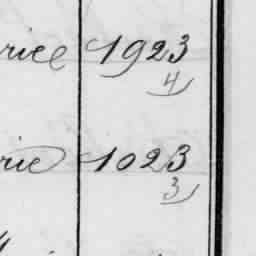 rice 1923
4
rie 1023
3